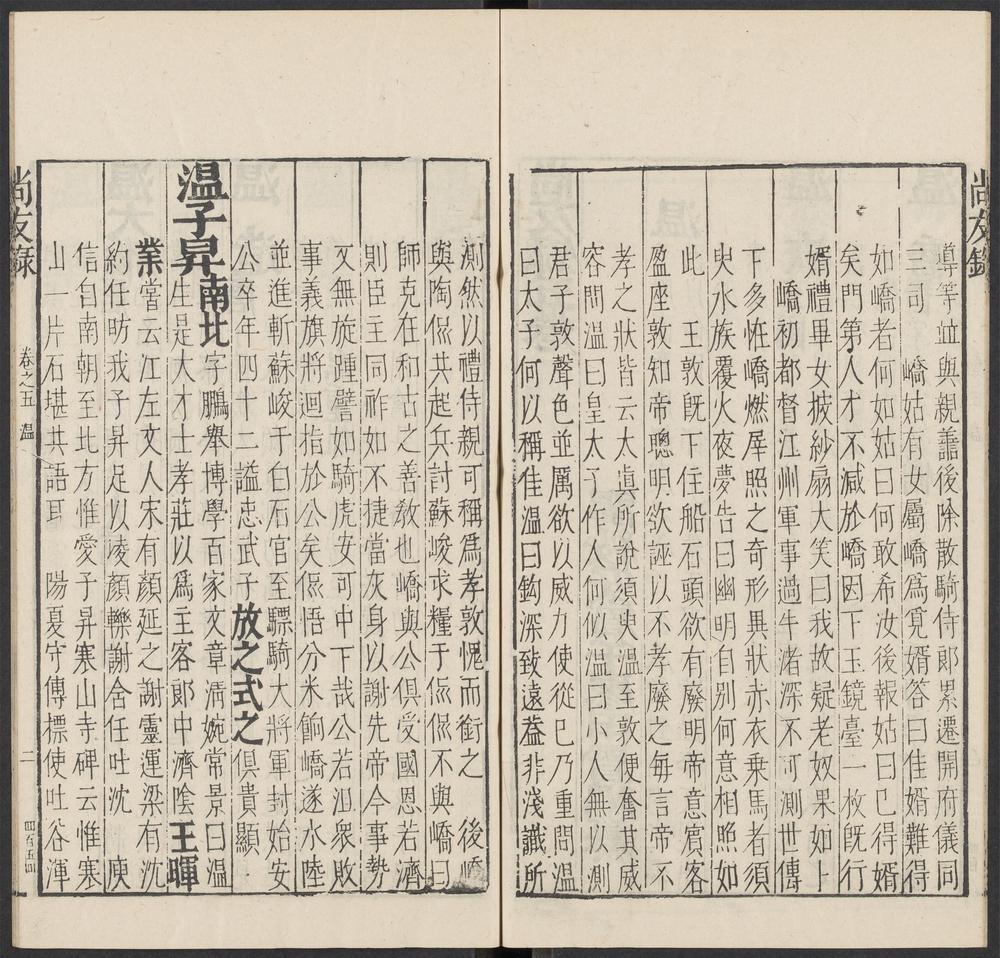 尚友錄
導等並與親善後除散騎侍郎累遷開府儀同
三司 嶠姑有女屬嶠爲覓婿答曰佳婿難得
如嶠者何如姑曰何敢希汝後報姑曰已得婿
矣門第人才不減於嶠因下玉鏡臺一枚既行
婿禮畢女披紗扇大笑曰我故疑老奴果如卜
嶠初都督江州軍事過牛渚深不可測世傳
下多怪嶠燃犀照之奇形異狀赤衣乗馬者須
臾水族覆火夜夢告曰幽明自别何意相照如
此 王敦既下住船石頭欲有廢明帝意賓客
盈座敦知帝聰明欲誣以不孝廢之每言帝不
孝之狀皆云太眞所說須臾温至敦便奮其威
容問温曰皇太子作人何似温曰小人無以測
君子敦聲色並厲欲以威力使從已乃重問温
曰太子何以稱佳温曰鈎深致遠葢非淺識所
測然以禮侍親可稱爲孝敦愧而銜之 後嶠
與陶侃共起兵討蘇峻求糧于侃侃不與嶠曰
師克在和古之善敎也嶠與公俱受國恩若濟
則臣主同祚如不捷當灰身以謝先帝今事勢
又無旋踵譬如騎虎安可中下哉公若沮衆敗
事義旗將迴指於公矣侃悟分米餉嶠遂水陸
並進斬蘇峻于白石官至驃騎大將軍封始安
公卒年四十二諡忠武子放之式之俱貴顯
温子昇南北字鵬舉博學百家文章淸婉常景曰温
生是大才士孝莊以爲主客郎中濟陰王暉
業嘗云江左文人宋有顏延之謝靈運梁有沈
約任昉我子昇足以凌顏轢謝含任吐沈 庾
信自南朝至北方惟愛子昇寒山寺碑云惟寒
山一片石堪共語耳 陽夏守傅標使吐谷渾
尚友錄 卷之五 温 二 四百五四